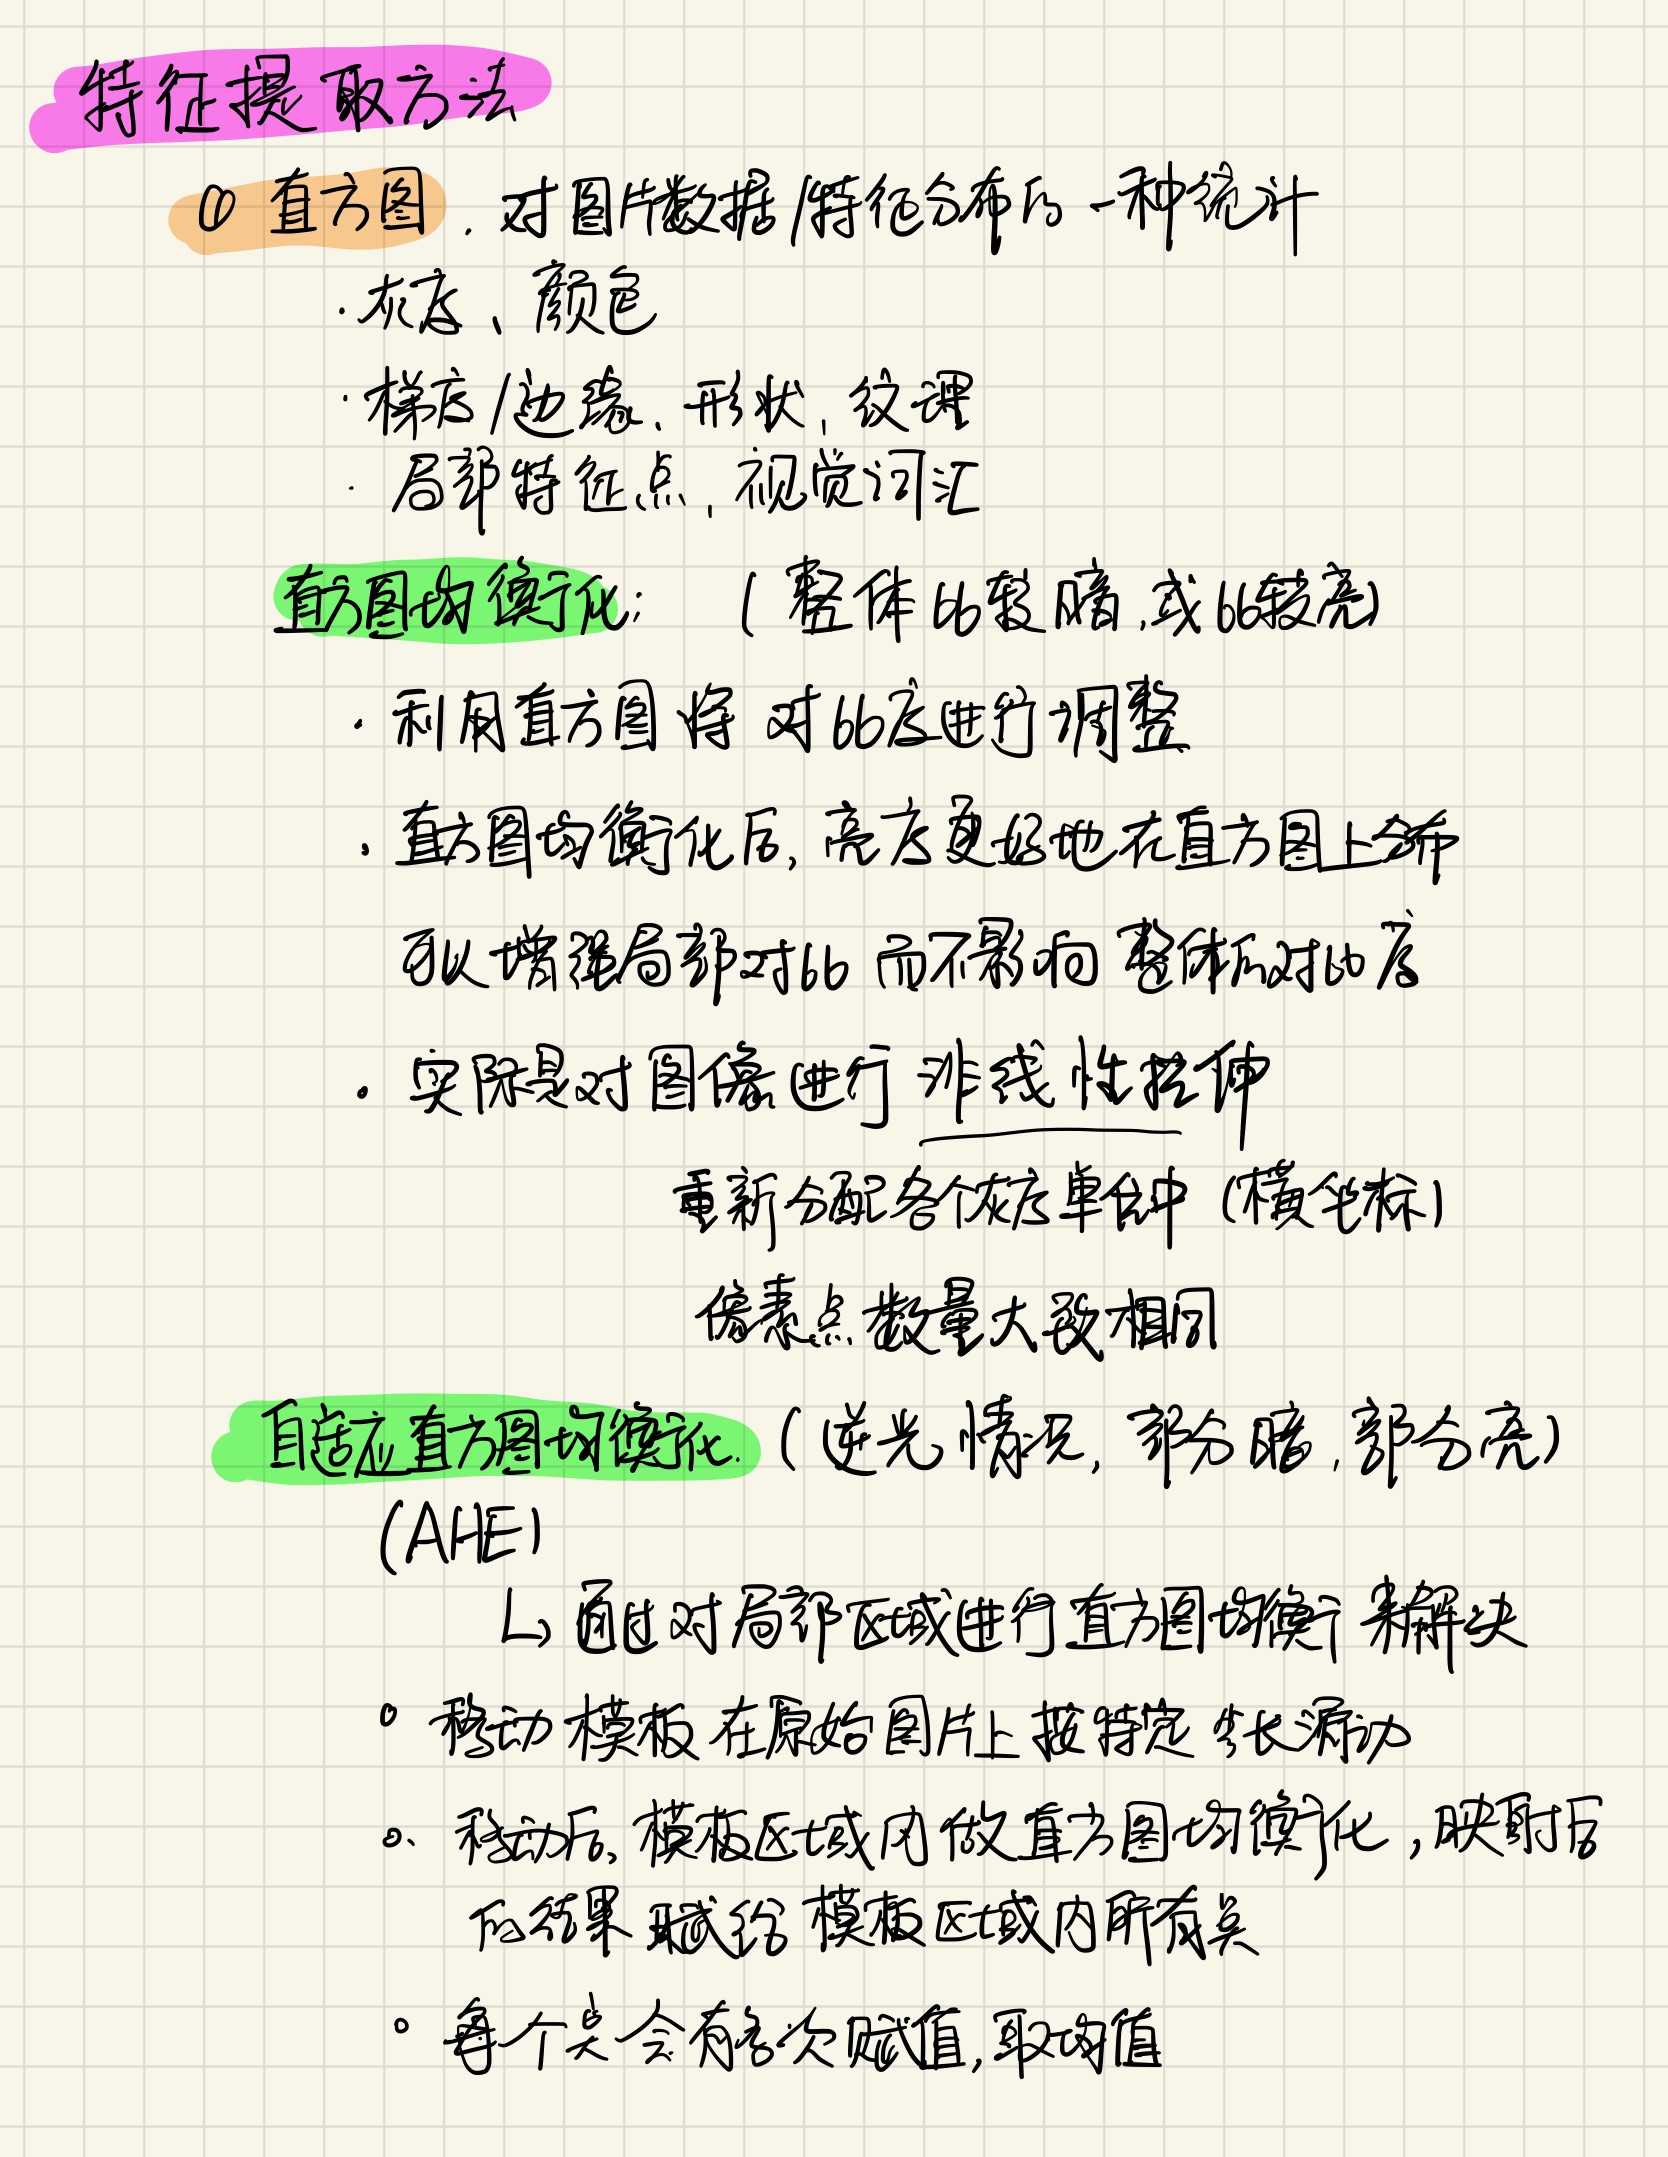 特征提取方法
① 直方图. 对图片数据/特征分布的一种统计
· 灰度、颜色
· 梯度/边缘、形状, 纹理
· 局部特征点, 视觉词汇
直方图均衡化: (整体比较暗,或比较亮)
· 利用直方图将 对比度进行调整
· 直方图均衡化后, 亮度更好地在直方图上分布
可以增强局部对比 而不影响 整体的对比度
· 实际是对图像进行 非线性拉伸
重新分配各个灰度单位中 (横坐标)
像素点数量大致相同
自适应直方图均衡化. (逆光情况, 部分暗, 部分亮)
(AHE)
↳ 通过对局部区域进行直方图均衡 来解决
° 移动模板在原始图片上按特定步长滑动
°. 移动后, 模板区域内做直方图均衡化, 映射后
的结果赋给模板区域内所有点
° 每个点会有多次赋值, 取均值